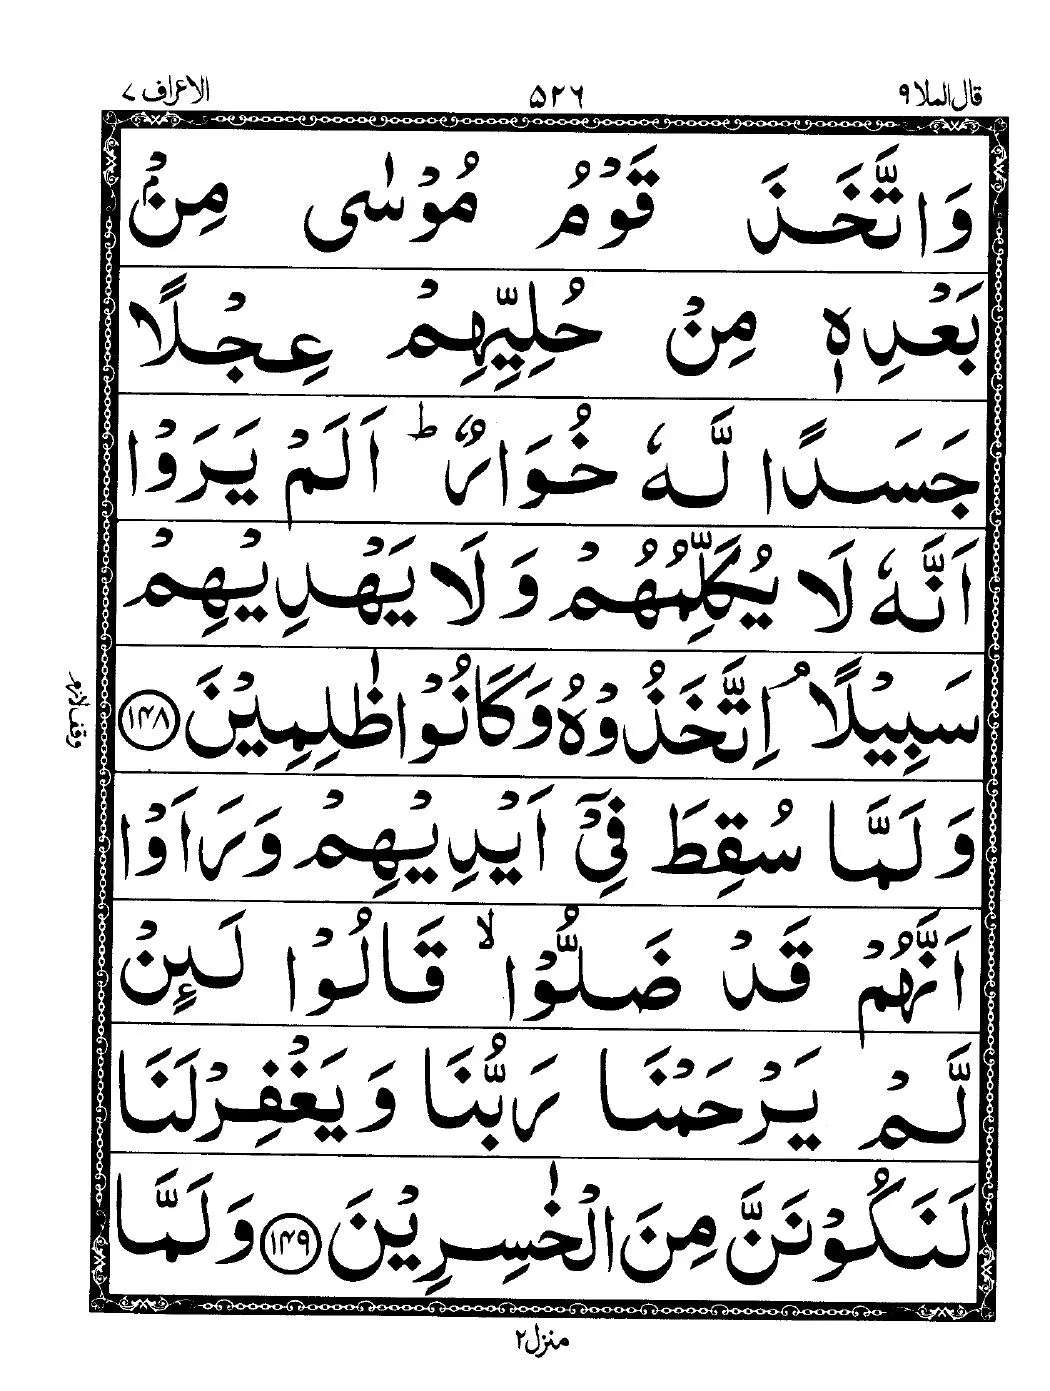 قال الملا ٩ ٥٢٦ الاعراف ٧
وَاتَّخَذَ قَوْمُ مُوْسٰى مِنْۢ
بَعْدِهٖ مِنْ حُلِيِّهِمْ عِجْلًا
جَسَدًا لَّهٗ خُوَارٌ ؕ اَلَمْ يَرَوْا
اَنَّهٗ لَا يُكَلِّمُهُمْ وَلَا يَهْدِيْهِمْ
سَبِيْلًا ۘ اِتَّخَذُوْهُ وَكَانُوْا ظٰلِمِيْنَ ١٤٨
وقف لازم
وَلَمَّا سُقِطَ فِيْۤ اَيْدِيْهِمْ وَرَاَوْا
اَنَّهُمْ قَدْ ضَلُّوْا ۙ قَالُوْا لَئِنْ
لَّمْ يَرْحَمْنَا رَبُّنَا وَيَغْفِرْ لَنَا
لَنَكُوْنَنَّ مِنَ الْخٰسِرِيْنَ ١٤٩ وَلَمَّا
منزل ٢